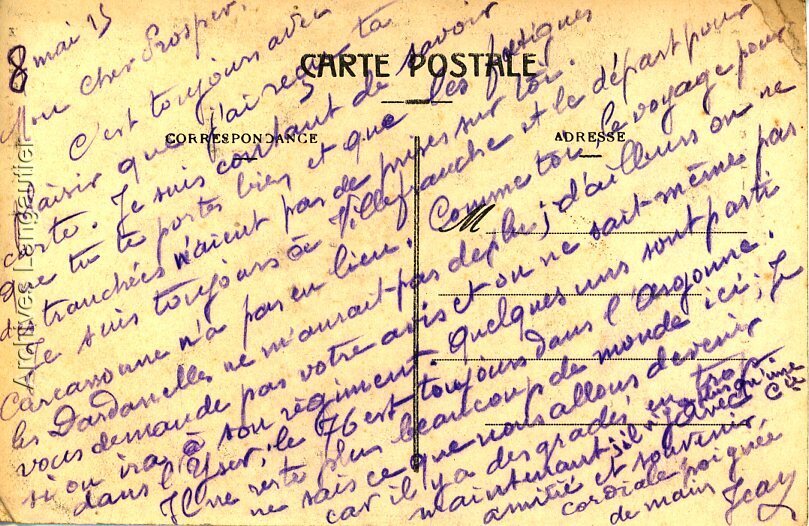 8 mai 15
Mon cher Prosper,
C'est toujours avec
plaisir que j'ai reçu ta
carte. Je suis content de savoir
que tu te portes bien et que les fatigues
des tranchées n'aient pas de prises sur toi.
Je suis toujours à Villefranche et le départ pour
Carcassonne n'a pas eu lieu. Comme toi le voyage pour
les Dardanelles ne m'aurait pas deplu; d'ailleurs on ne
vous demande pas votre avis et on ne sait même pas
si on ira à son régiment. Quelques uns sont parti
dans l'Yser, le 76 est toujours dans l'Argonne.
Il ne reste plus beaucoup de monde ici; Je
ne sais ce que nous allons devenir
car il y a des gradés en trop
maintenant, il n'y a qu'une Cie
amitié et souvenir avec
cordiale poignée
de main Jean
CARTE POSTALE
CORRESPONDANCE
ADRESSE
M
Archives Lengautier